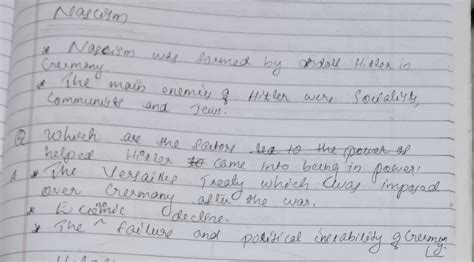 Nascism
* Nascism was formed by Adolf Hitler in
Germany
* The main enemies of Hitler were Socialists,
Communists and Jews.
Q Which are the factors led to the power of
helped Hitler to came into being in power.
A * The Versailles Treaty which was imposed
over Germany after the war.
* Ecomic decline.
* The failure and political instability of German